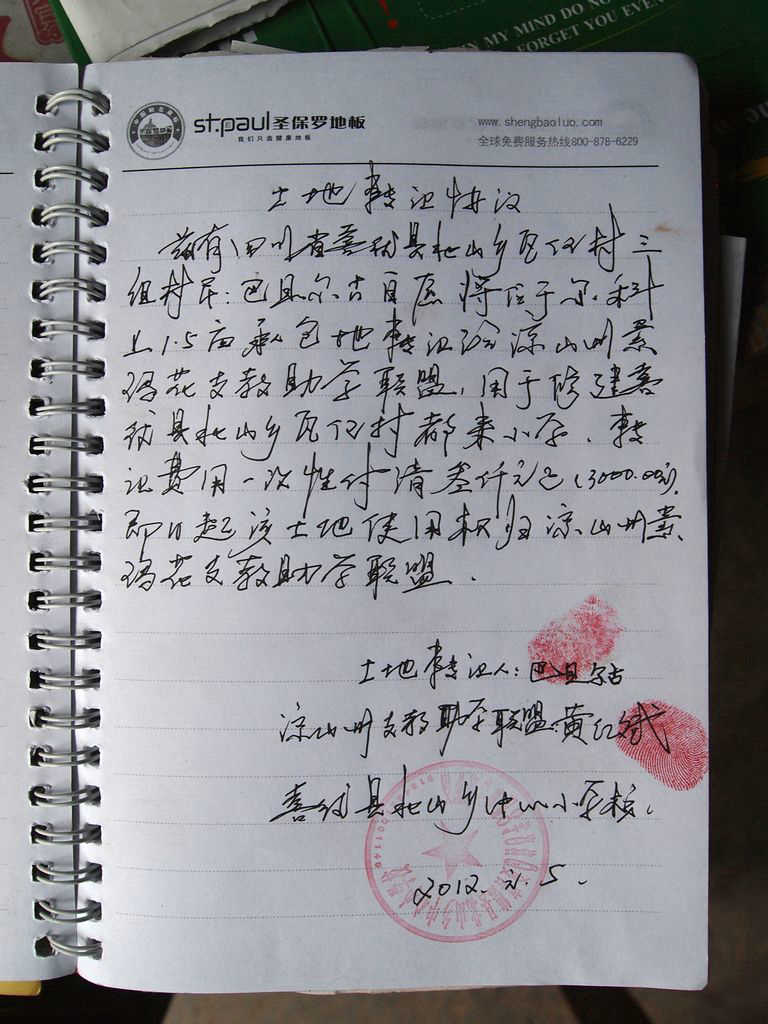 MY MIND DO NO
FORGET YOU EVEN
st.paul圣保罗地板
我们只造健康地板
www.shengbaoluo.com
全球免费服务热线800-878-6229
土地转让协议
兹有四川省喜德县北山乡瓦伍村三
组村民:巴且尔古自愿将位于尔科
上1.5亩承包地转让给凉山州索
玛花支教助学联盟,用于修建喜
德县北山乡瓦伍村都来小学.转
让费用一次性付清叁仟元正(3000.00元).
即日起该土地使用权归凉山州索
玛花支教助学联盟.
土地转让人:巴且尔古
凉山州支教助学联盟:黄红斌
喜德县北山乡中心小学校.
2012. 5.